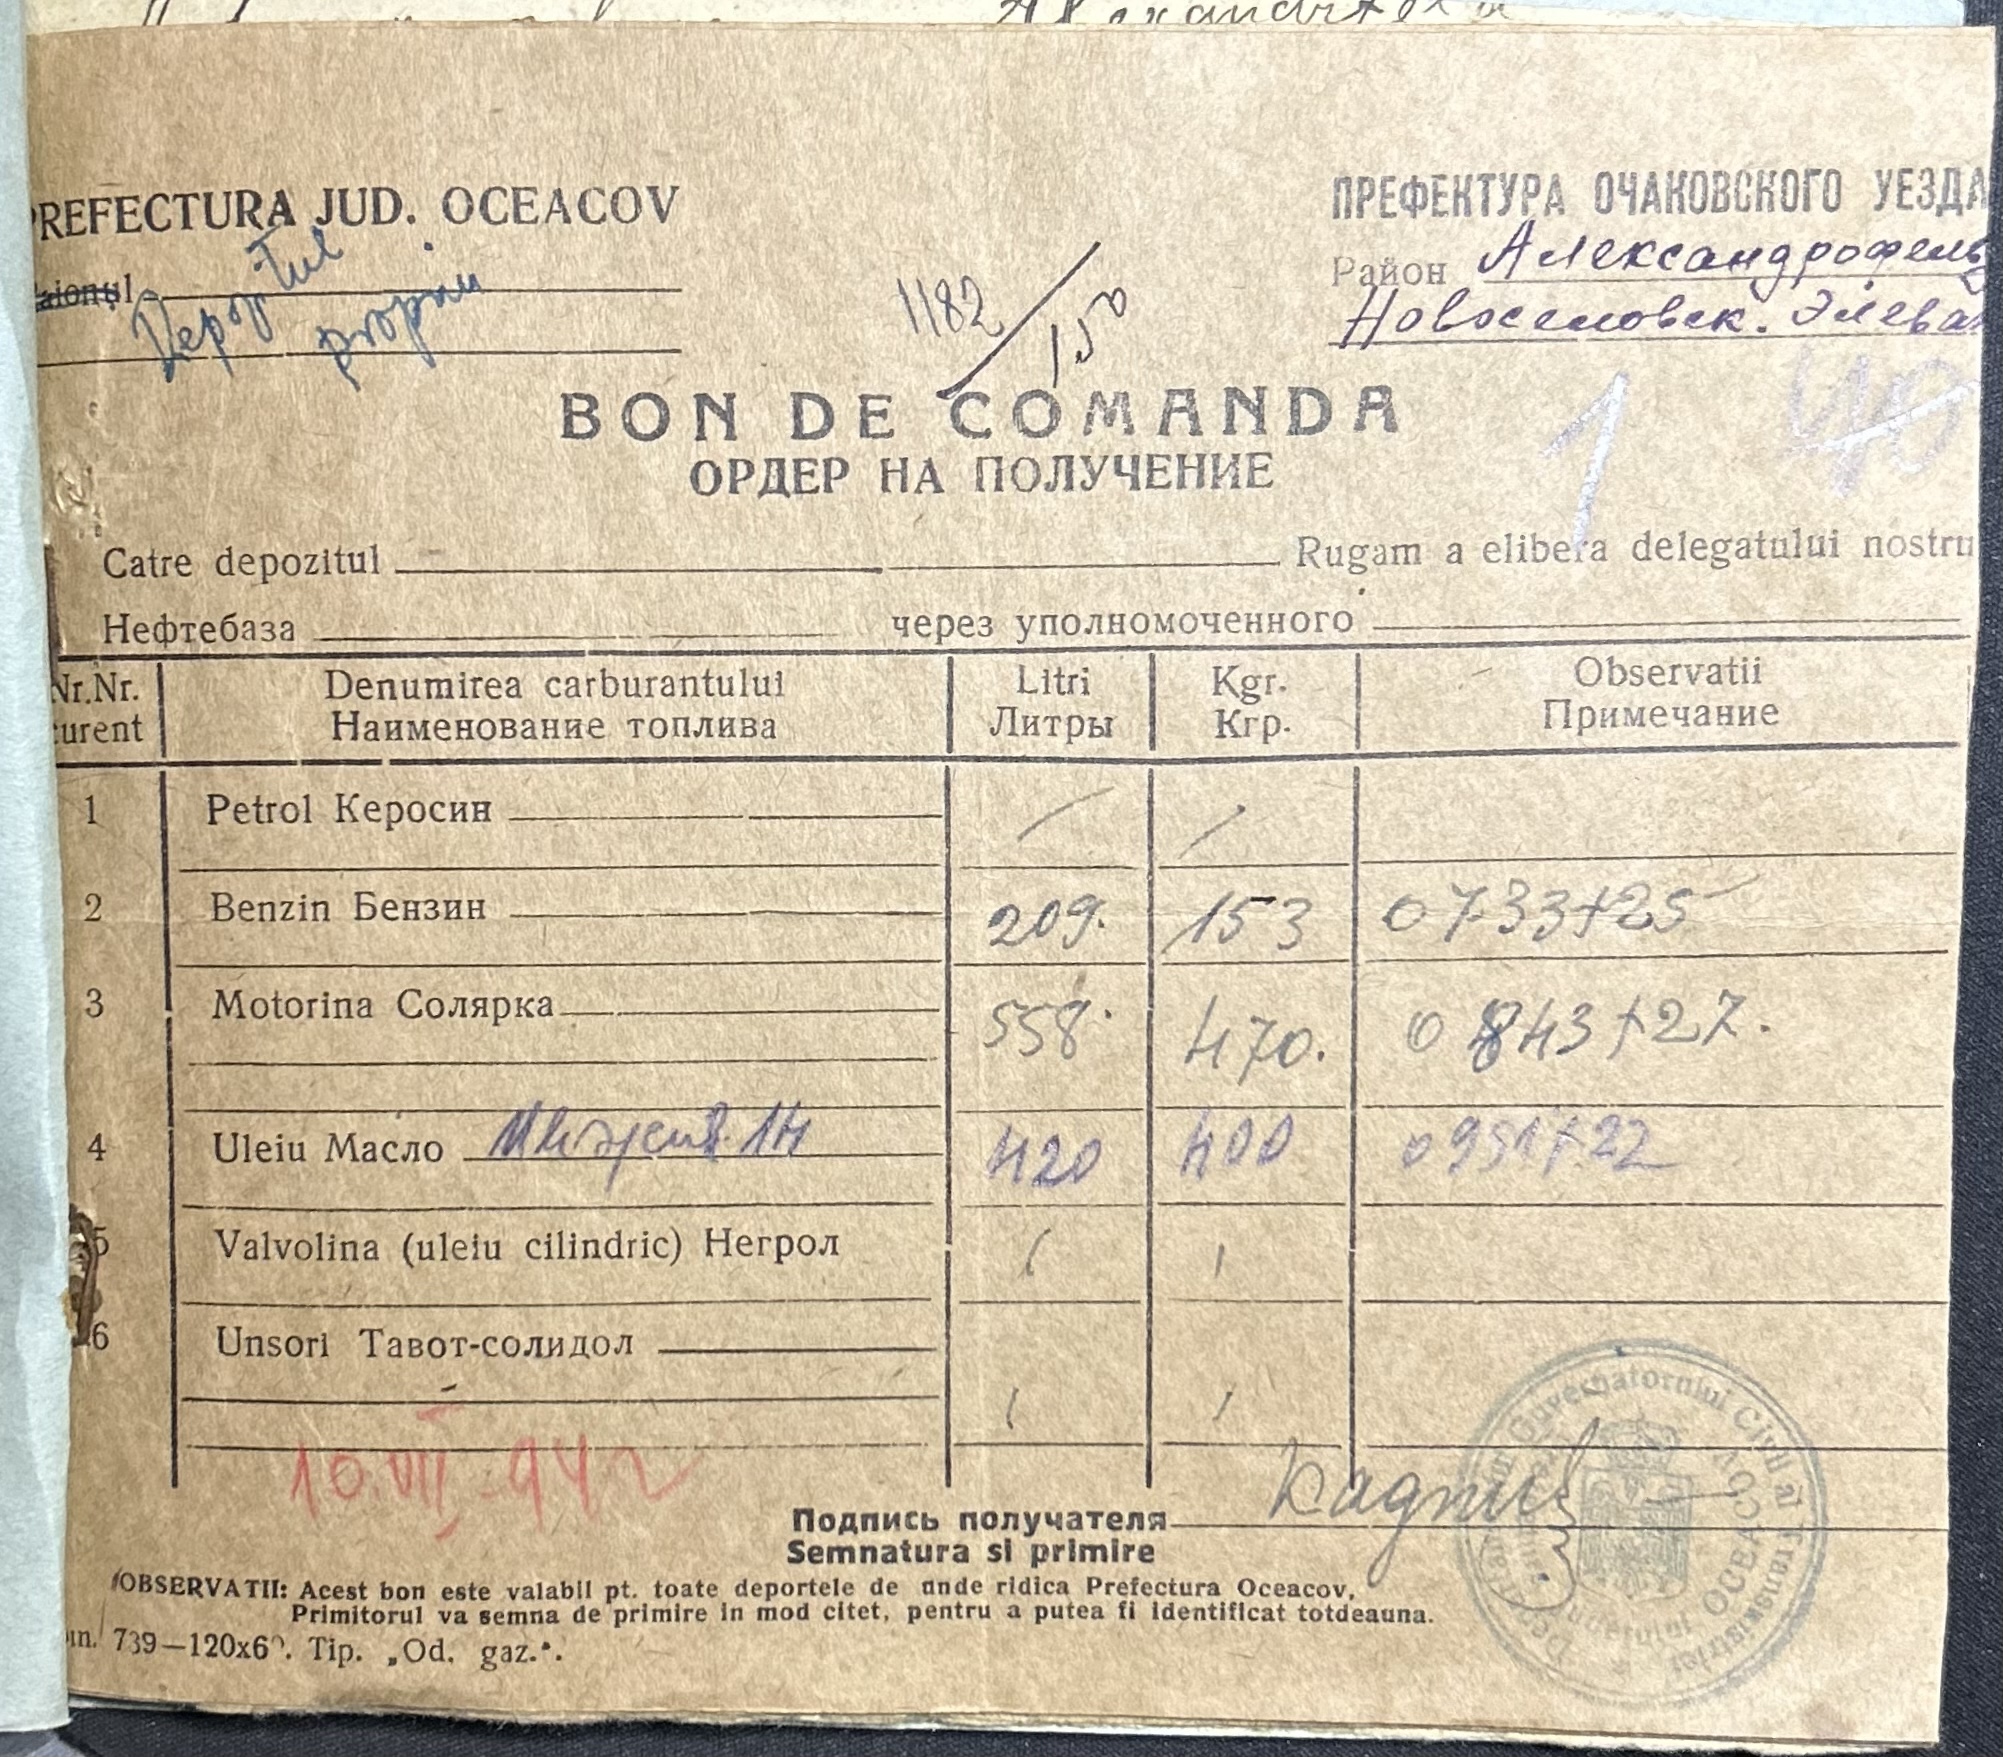 PREFECTURA JUD. OCEACOV
ПРЕФЕКТУРА ОЧАКОВСКОГО УЕЗДА
Raionul
Район Александрофель
Новоселовск. Элева
1182/150
BON DE COMANDA
ОРДЕР НА ПОЛУЧЕНИЕ
1 40
Catre depozitul Rugam a elibera delegatului nostru
Нефтебаза через уполномоченного
Nr.Nr. Denumirea carburantului Litri Kgr. Observatii
curent Наименование топлива Литры Кгр. Примечание
1 Petrol Керосин
2 Benzin Бензин 209. 153 0733+25
3 Motorina Солярка 558. 470. 0843+27.
4 Uleiu Масло 420 400 0951+22
5 Valvolina (uleiu cilindric) Негрол
6 Unsori Тавот-солидол
10.VII-942
Подпись получателя
Semnatura si primire
OBSERVATII: Acest bon este valabil pt. toate deportele de unde ridica Prefectura Oceacov,
Primitorul va semna de primire in mod citet, pentru a putea fi identificat totdeauna.
739—120x6 . Tip. „Od. gaz.“.
Guvernatorului Civil al Transnistriei
Judetului OCEACOV